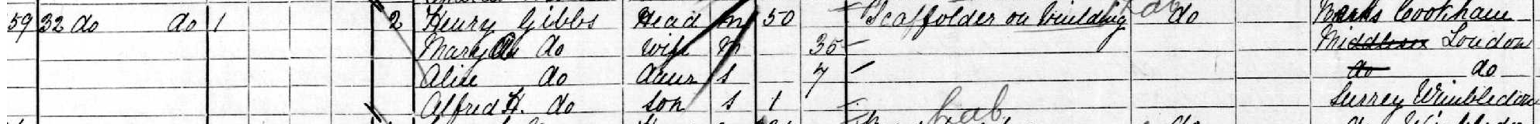 59 32 do do 1 2 Henry Gibbs Head m 50 Scaffolder on Building do Berks Cookham
Mary A do wife m 35 Middlesex London
Alise do daur s 7 do do
Alfred H. do son s 1 Surrey Wimbledon
Lab do